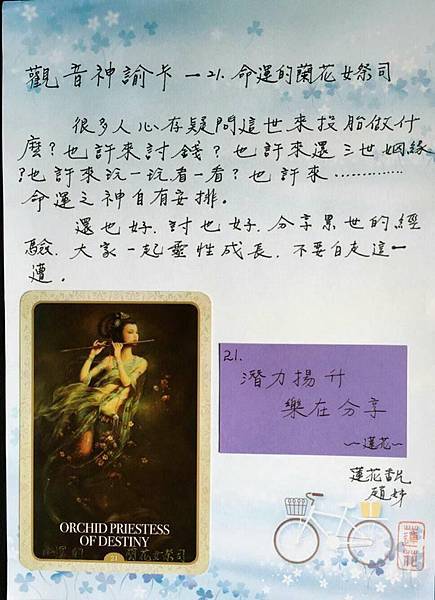 觀音神諭卡—21.命運的蘭花女祭司
很多人心存疑問這世來投胎做什
麼?也許來討錢?也許來還三世姻緣
?也許來玩一玩.看一看?也許來…………
命運之神自有安排.
還也好.討也好.分享累世的經
驗.大家一起靈性成長.不要白走這一
遭。
21.
潛力揚升
樂在分享
~蓮花~
蓮花
ORCHID PRIESTESS
OF DESTINY
21
命運的 蘭花女祭司